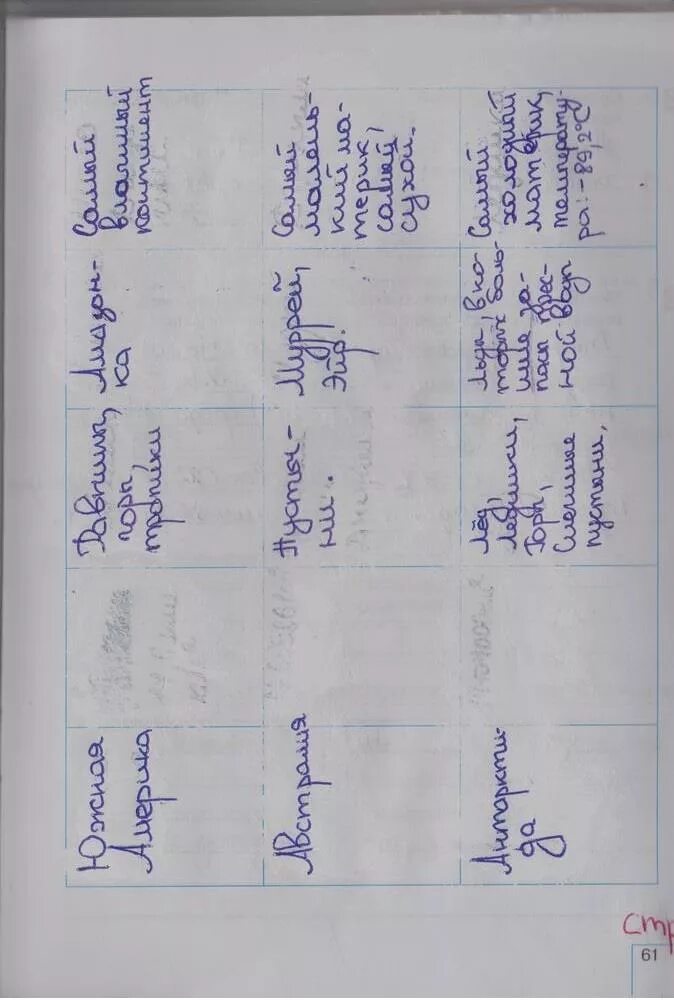 Южная
Америка
Равнины,
горы,
тропики
Амазон-
ка
Самый
влажный
континент
Австралия
Пусты-
ни.
Муррей,
Эйр.
Самый
малень-
кий ма-
терик,
самый
сухой.
Антаркти-
да
Лёд,
Ледники,
Горы,
Снежные
пустыни,
Льды, в ко-
торых боль-
шие за-
пасы прес-
ной воды
Самый
холодный
материк,
температу-
ра: -89,2°C
стр
61